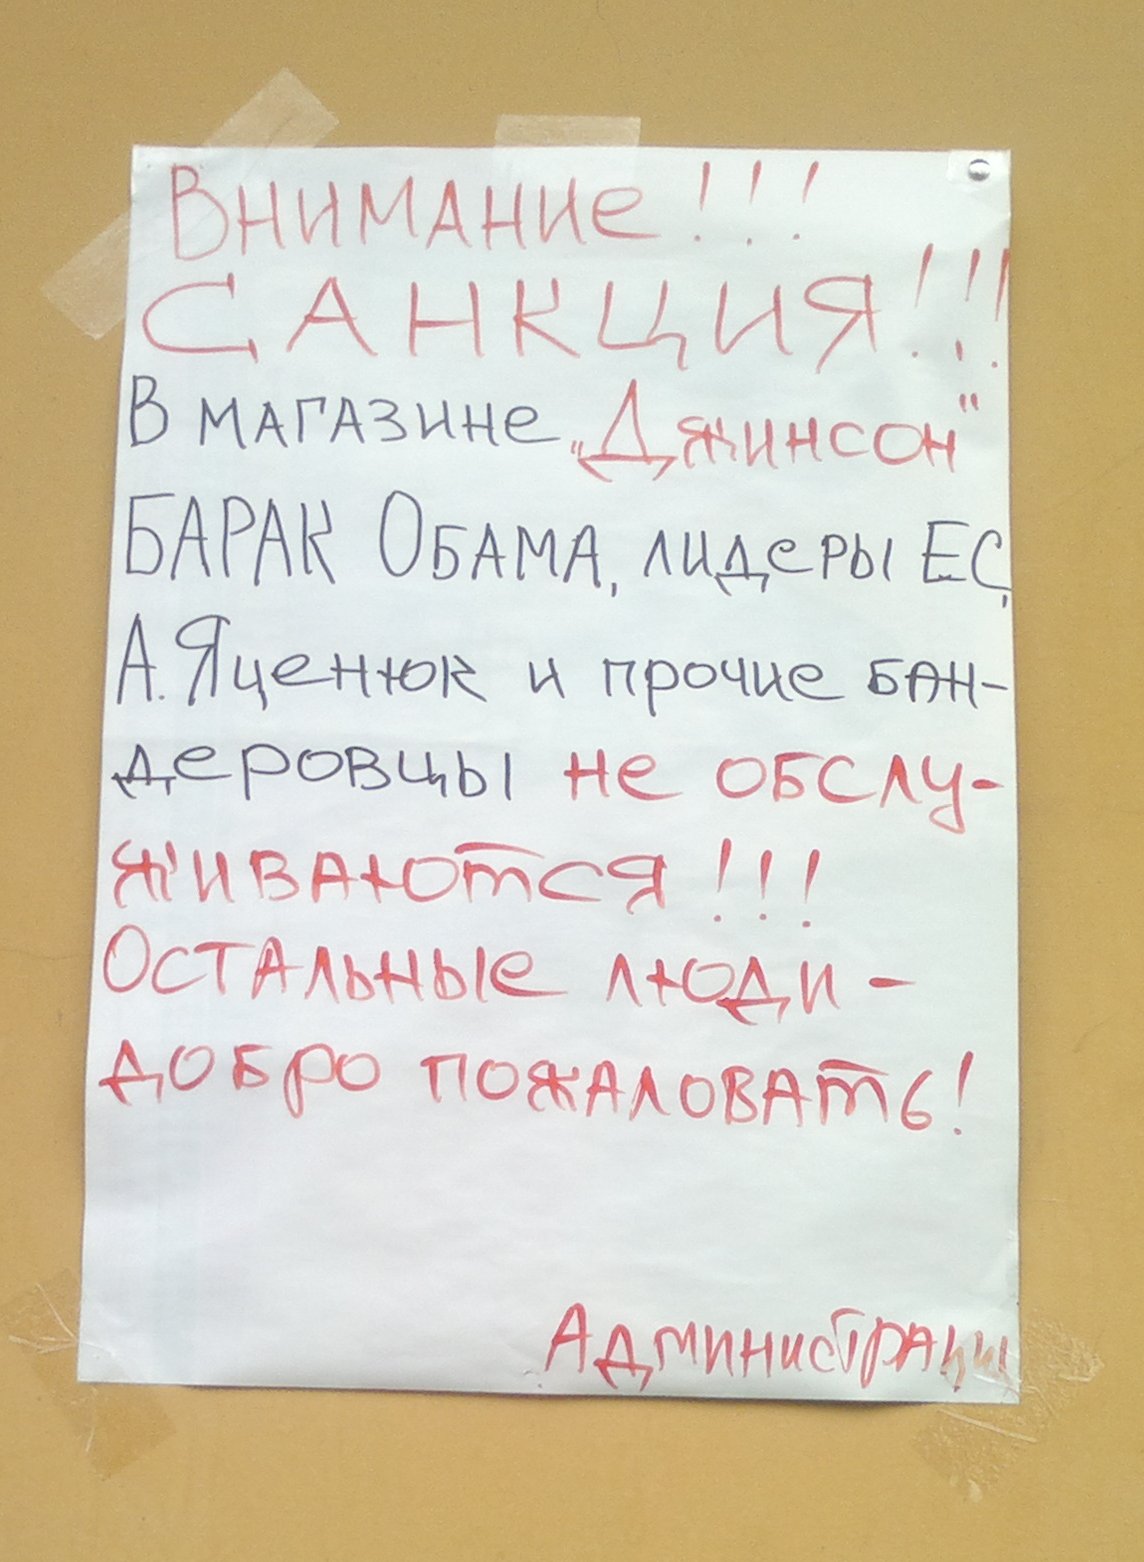 Внимание!!!
САНКЦИЯ!!!
В магазине „Джинсон"
БАРАК ОБАМА, лидеры ЕС,
А. Яценюк и прочие бан-
деровцы не обслу-
живаются!!!
Остальные люди -
добро пожаловать!
Администраци